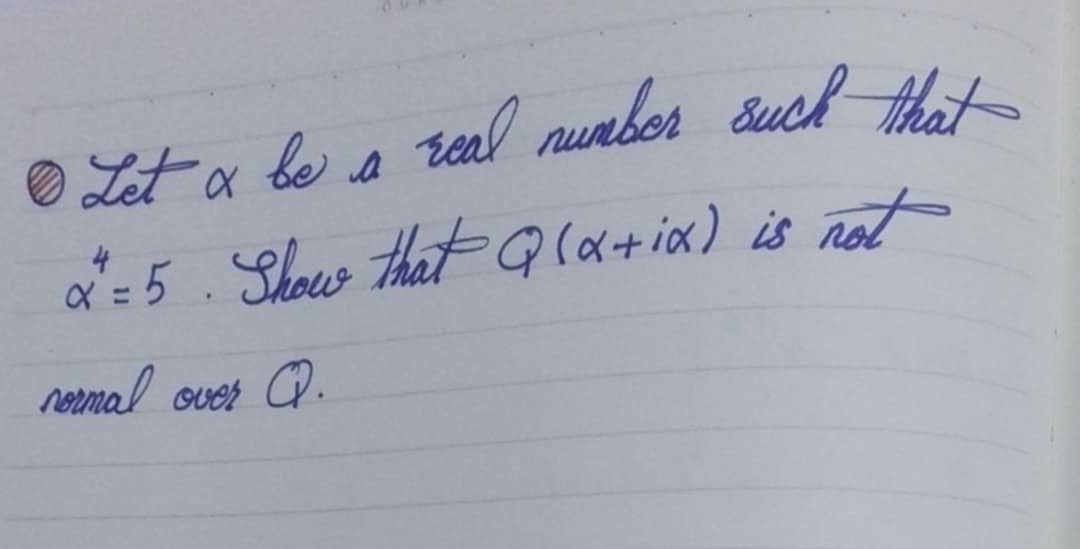 Let α be a real number such that
α⁴ = 5 . Show that Q(α+iα) is not
normal over Q.